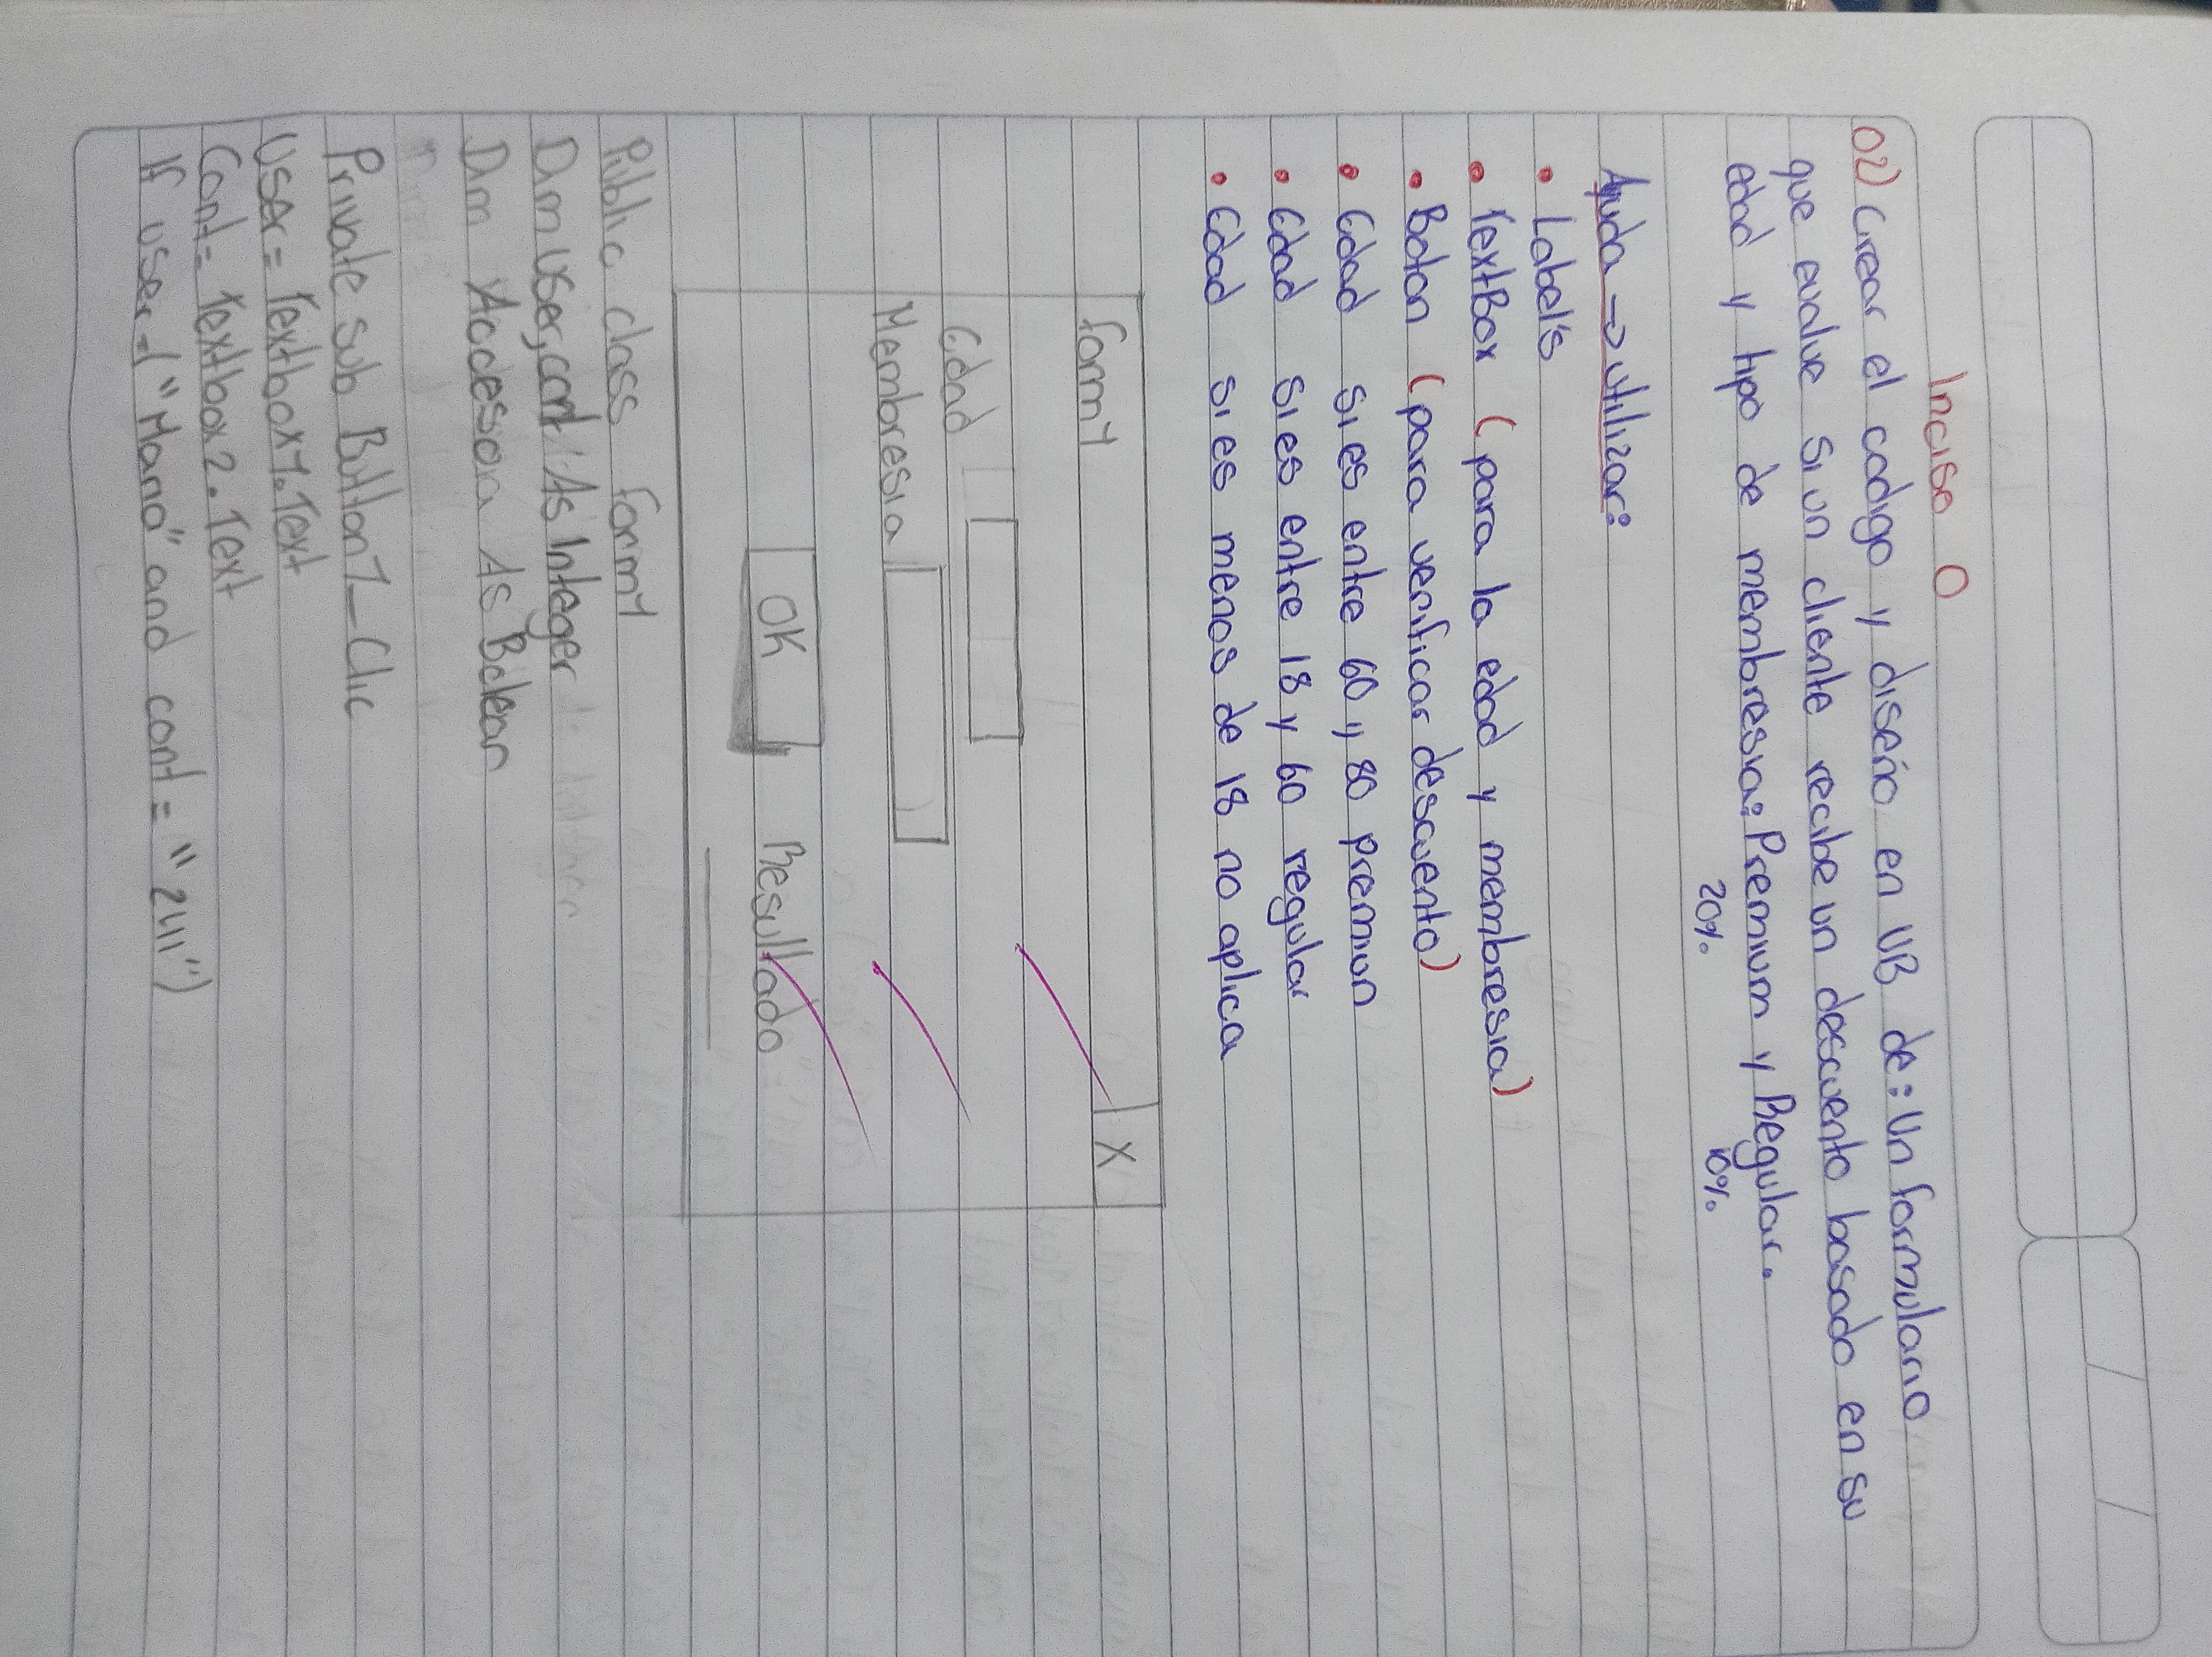 Inciso O
02) Crear el codigo y diseño en VB de: Un formulario
que evalue si un cliente recibe un descuento basado en su
edad y tipo de membresia: Premium y Regular.
20% 10%
Ayuda → utilizar:
• Label's
• TextBox (para la edad y membresia)
• Boton (para verificar descuento)
• Edad si es entre 60 y 80 premiun
• Edad si es entre 18 y 60 regular
• Edad si es menos de 18 no aplica
Form1 X
Edad
Membresia
OK Resultado
Public class form1
Dim user, cont As Integer
Dim As Bolean
Private sub Button1_Clic
User = Textbox1.Text
Cont = Textbox2.Text
If user = ("Maria" and cont = "2411")